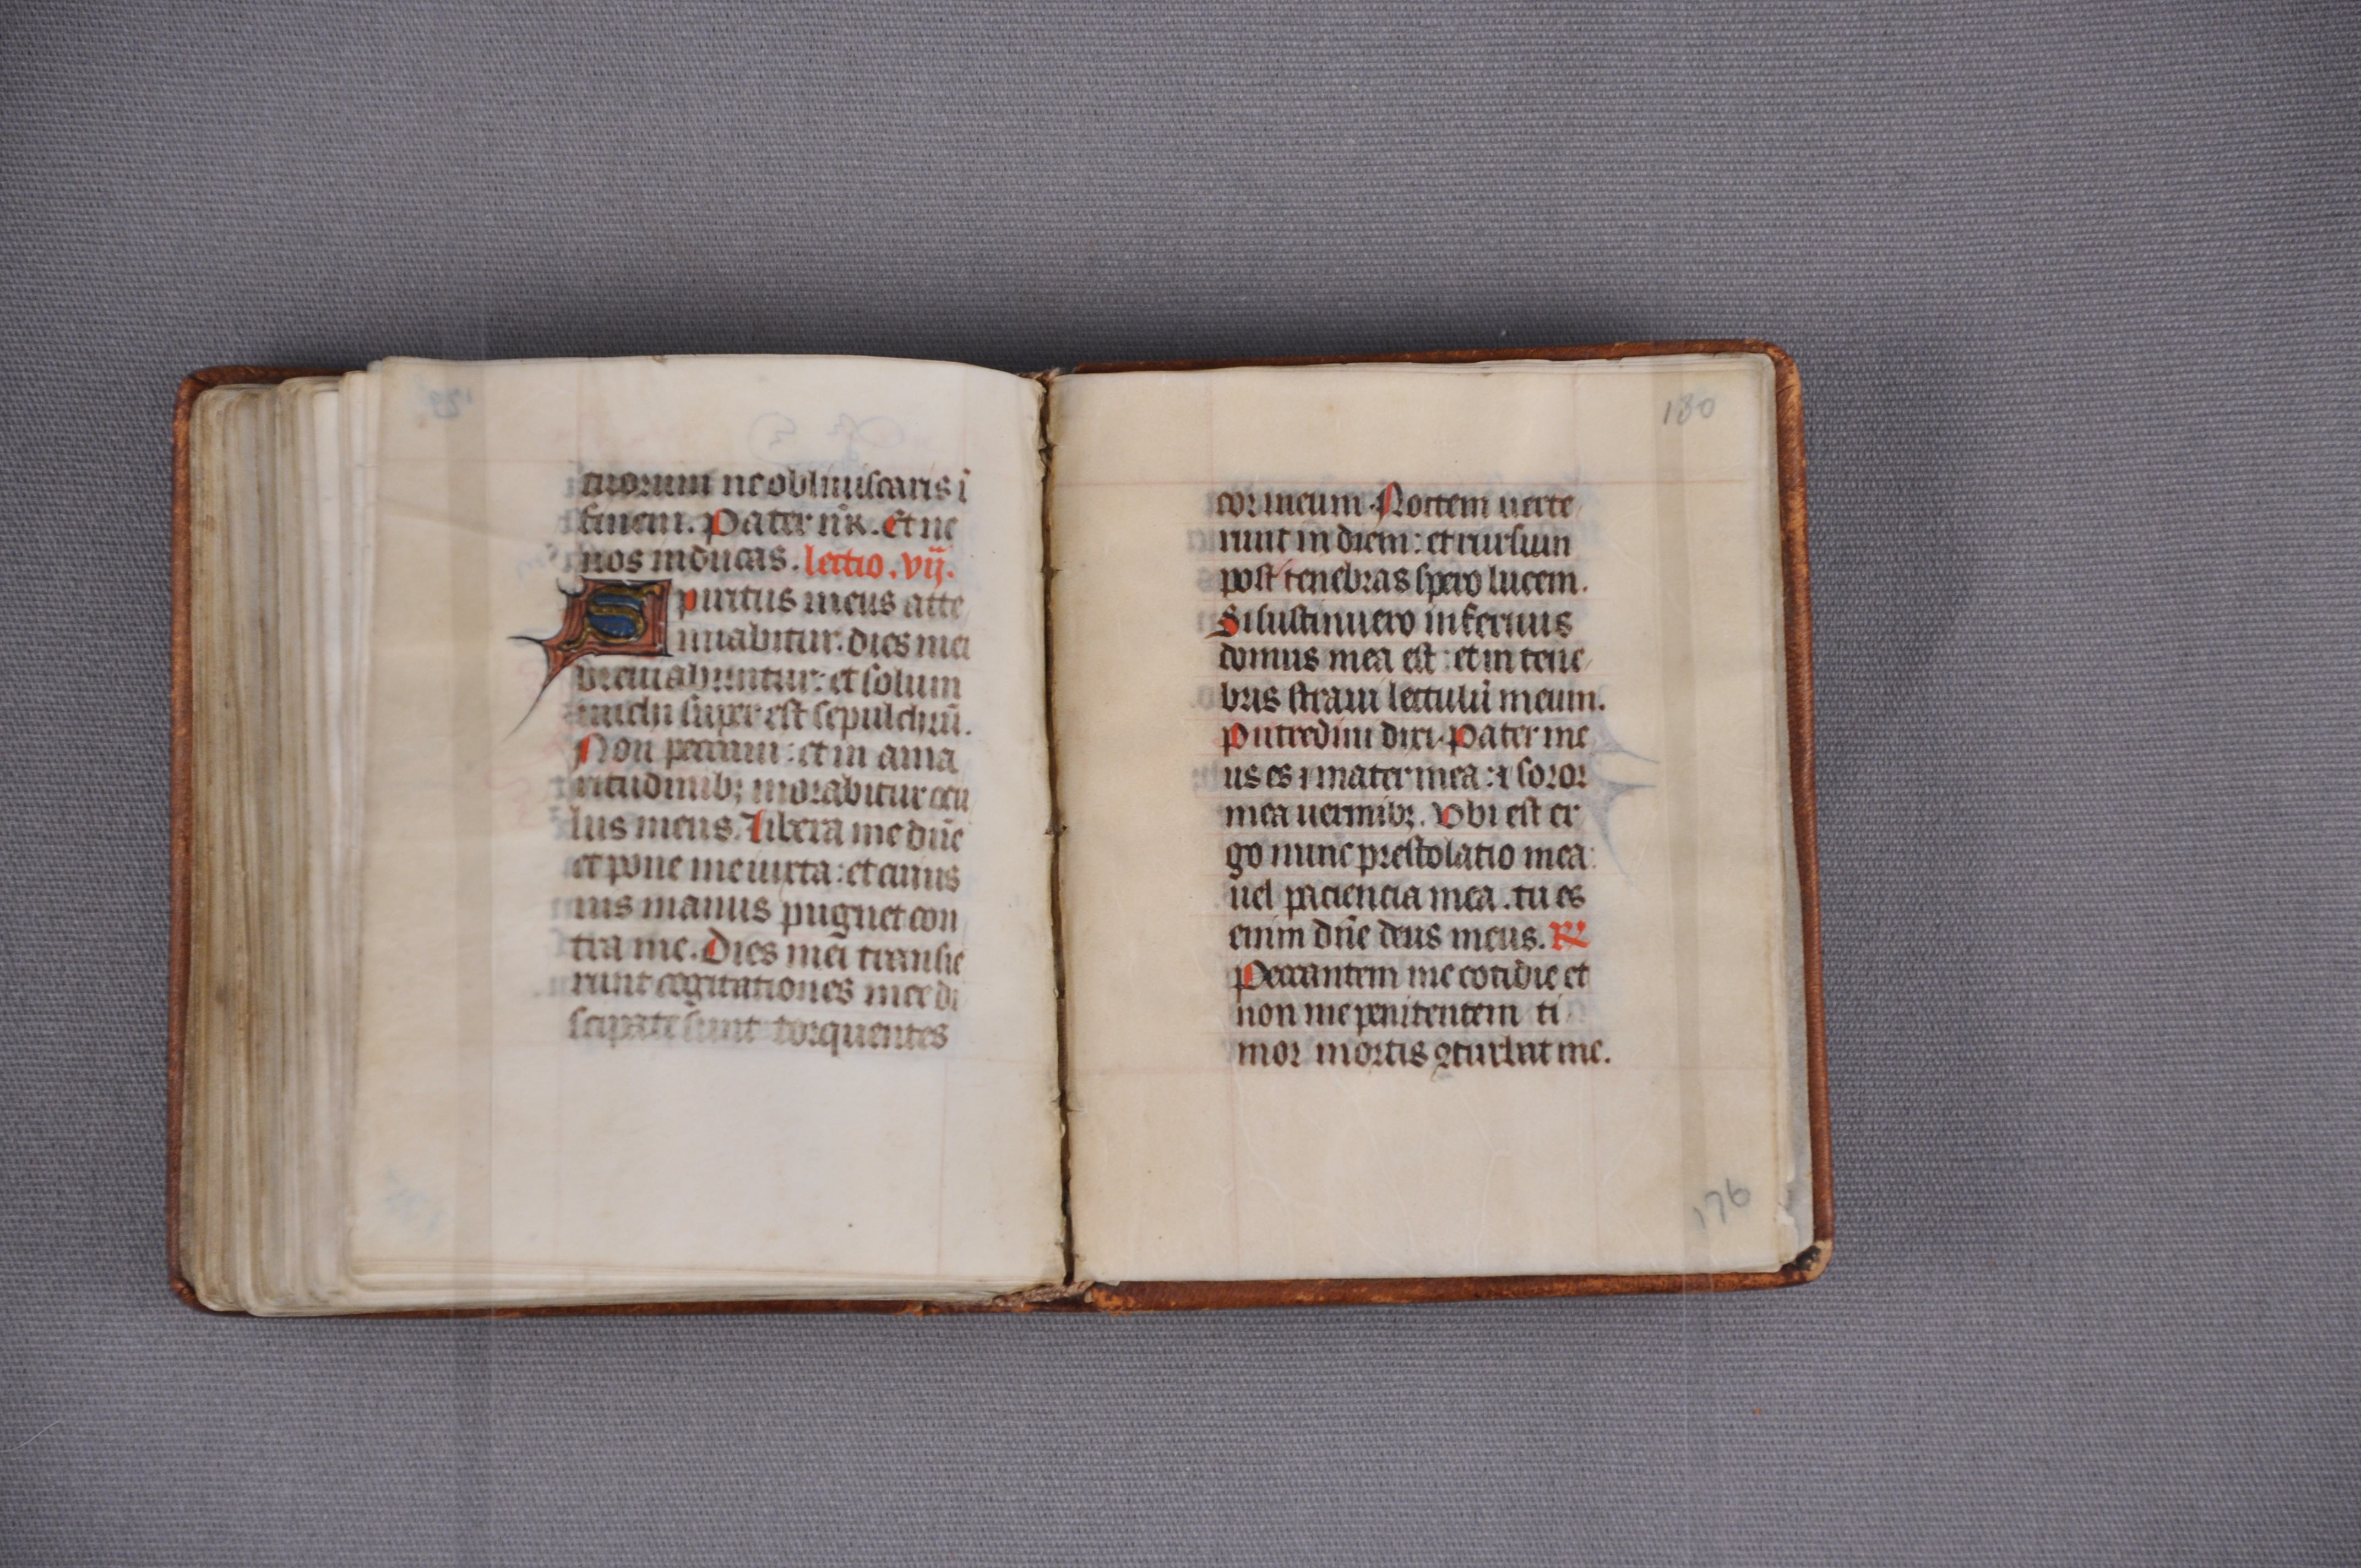 tuorum ne obliuiscaris ī
finem. Pater nr̄. Et ne
nos inducas. lectio. vij.
Spiritus meus atte
nuabitur: dies mei
breuiabuntur: et solum
michi super est sepulchrū.
Non peccaui: et in ama
ritudinibꝫ morabitur ocu
lus meus. Libera me dn̄e
et pone me iuxta: et cuius
uis manus pugnet con
tra me. Dies mei transie
runt cogitationes mee di
scipate sunt torquentes
180
cor meum. Noctem uerte
runt in diem: et rursum
post tenebras spero lucem.
Si sustinuero infernus
domus mea est: et in tene
bris straui lectulū meum.
Putredini dixi. Pater me
us es ⁊ mater mea: ⁊ soror
mea uermibꝫ. Vbi est er
go nunc prestolatio mea:
uel paciencia mea. tu es
enim dn̄e deus meus. ℟
Peccantem me cotidie et
non me penitentem ti
mor mortis ꝯturbat me.
176